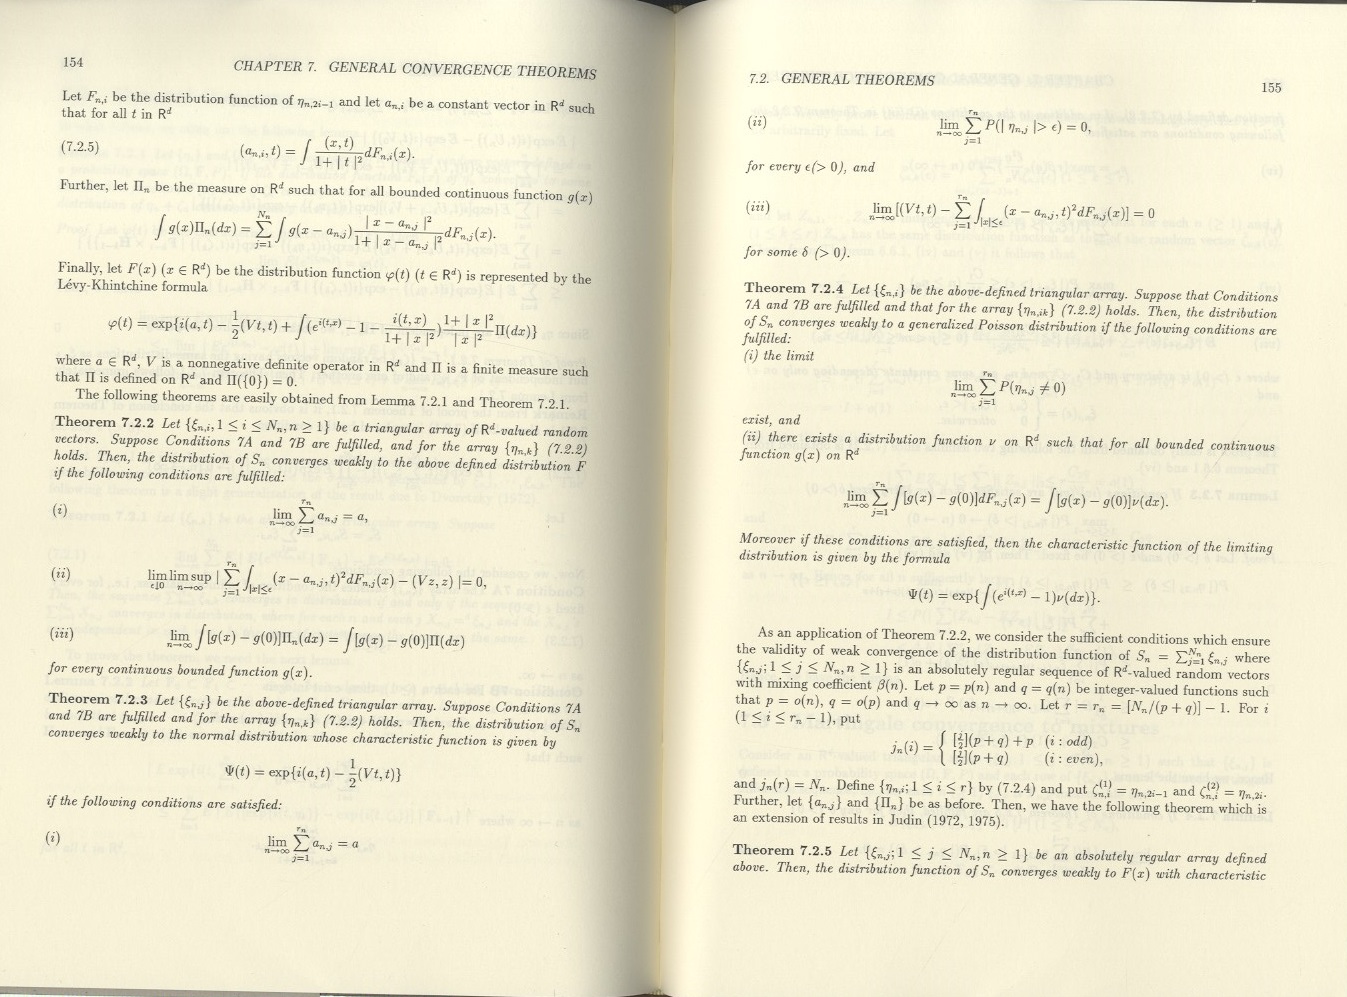 154
CHAPTER 7. GENERAL CONVERGENCE THEOREMS
Let F_{n,i} be the distribution function of η_{n,2i−1} and let a_{n,i} be a constant vector in R^d such
that for all t in R^d
(7.2.5) (a_{n,i}, t) = ∫ (x,t)/(1+ | t |²) dF_{n,i}(x).
Further, let Π_n be the measure on R^d such that for all bounded continuous function g(x)
∫ g(x)Π_n(dx) = Σ_{j=1}^{N_n} ∫ g(x − a_{n,j}) | x − a_{n,j} |²/(1+ | x − a_{n,j} |²) dF_{n,j}(x).
Finally, let F(x) (x ∈ R^d) be the distribution function φ(t) (t ∈ R^d) is represented by the
Lévy-Khintchine formula
φ(t) = exp{i(a, t) − ½(Vt, t) + ∫(e^{i(t,x)} − 1 − i(t, x)/(1+ | x |²)) (1+ | x |²)/(| x |²) Π(dx)}
where a ∈ R^d, V is a nonnegative definite operator in R^d and Π is a finite measure such
that Π is defined on R^d and Π({0}) = 0.
The following theorems are easily obtained from Lemma 7.2.1 and Theorem 7.2.1.
Theorem 7.2.2 Let {ξ_{n,i}, 1 ≤ i ≤ N_n, n ≥ 1} be a triangular array of R^d-valued random
vectors. Suppose Conditions 7A and 7B are fulfilled, and for the array {η_{n,k}} (7.2.2)
holds. Then, the distribution of S_n converges weakly to the above defined distribution F
if the following conditions are fulfilled:
(i) lim_{n→∞} Σ_{j=1}^{r_n} a_{n,j} = a,
(ii) lim_{ε↓0} lim sup_{n→∞} | Σ_{j=1}^{r_n} ∫_{|x|≤ε} (x − a_{n,j}, t)² dF_{n,j}(x) − (Vz, z) |= 0,
(iii) lim_{n→∞} ∫[g(x) − g(0)]Π_n(dx) = ∫[g(x) − g(0)]Π(dx)
for every continuous bounded function g(x).
Theorem 7.2.3 Let {ξ_{n,j}} be the above-defined triangular array. Suppose Conditions 7A
and 7B are fulfilled and for the array {η_{n,k}} (7.2.2) holds. Then, the distribution of S_n
converges weakly to the normal distribution whose characteristic function is given by
Ψ(t) = exp{i(a, t) − ½(Vt, t)}
if the following conditions are satisfied:
(i) lim_{n→∞} Σ_{j=1}^{r_n} a_{n,j} = a
7.2. GENERAL THEOREMS
155
(ii) lim_{n→∞} Σ_{j=1}^{r_n} P(| η_{n,j} |> ε) = 0,
for every ε(> 0), and
(iii) lim_{n→∞} [(Vt, t) − Σ_{j=1}^{r_n} ∫_{|x|≤ε} (x − a_{n,j}, t)² dF_{n,j}(x)] = 0
for some δ (> 0).
Theorem 7.2.4 Let {ξ_{n,i}} be the above-defined triangular array. Suppose that Conditions
7A and 7B are fulfilled and that for the array {η_{n,ik}} (7.2.2) holds. Then, the distribution
of S_n converges weakly to a generalized Poisson distribution if the following conditions are
fulfilled:
(i) the limit
lim_{n→∞} Σ_{j=1}^{r_n} P(η_{n,j} ≠ 0)
exist, and
(ii) there exists a distribution function ν on R^d such that for all bounded continuous
function g(x) on R^d
lim_{n→∞} Σ_{j=1}^{r_n} ∫[g(x) − g(0)]dF_{n,j}(x) = ∫[g(x) − g(0)]ν(dx).
Moreover if these conditions are satisfied, then the characteristic function of the limiting
distribution is given by the formula
Ψ(t) = exp{∫(e^{i(t,x)} − 1)ν(dx)}.
As an application of Theorem 7.2.2, we consider the sufficient conditions which ensure
the validity of weak convergence of the distribution function of S_n = Σ_{j=1}^{N_n} ξ_{n,j} where
{ξ_{n,j}; 1 ≤ j ≤ N_n, n ≥ 1} is an absolutely regular sequence of R^d-valued random vectors
with mixing coefficient β(n). Let p = p(n) and q = q(n) be integer-valued functions such
that p = o(n), q = o(p) and q → ∞ as n → ∞. Let r = r_n = [N_n/(p + q)] − 1. For i
(1 ≤ i ≤ r_n − 1), put
j_n(i) = { [i/2](p + q) + p (i : odd)
[i/2](p + q) (i : even),
and j_n(r) = N_n. Define {η_{n,i}; 1 ≤ i ≤ r} by (7.2.4) and put ζ_{n,i}^{(1)} = η_{n,2i−1} and ζ_{n,i}^{(2)} = η_{n,2i}.
Further, let {a_{n,j}} and {Π_n} be as before. Then, we have the following theorem which is
an extension of results in Judin (1972, 1975).
Theorem 7.2.5 Let {ξ_{n,j}; 1 ≤ j ≤ N_n, n ≥ 1} be an absolutely regular array defined
above. Then, the distribution function of S_n converges weakly to F(x) with characteristic